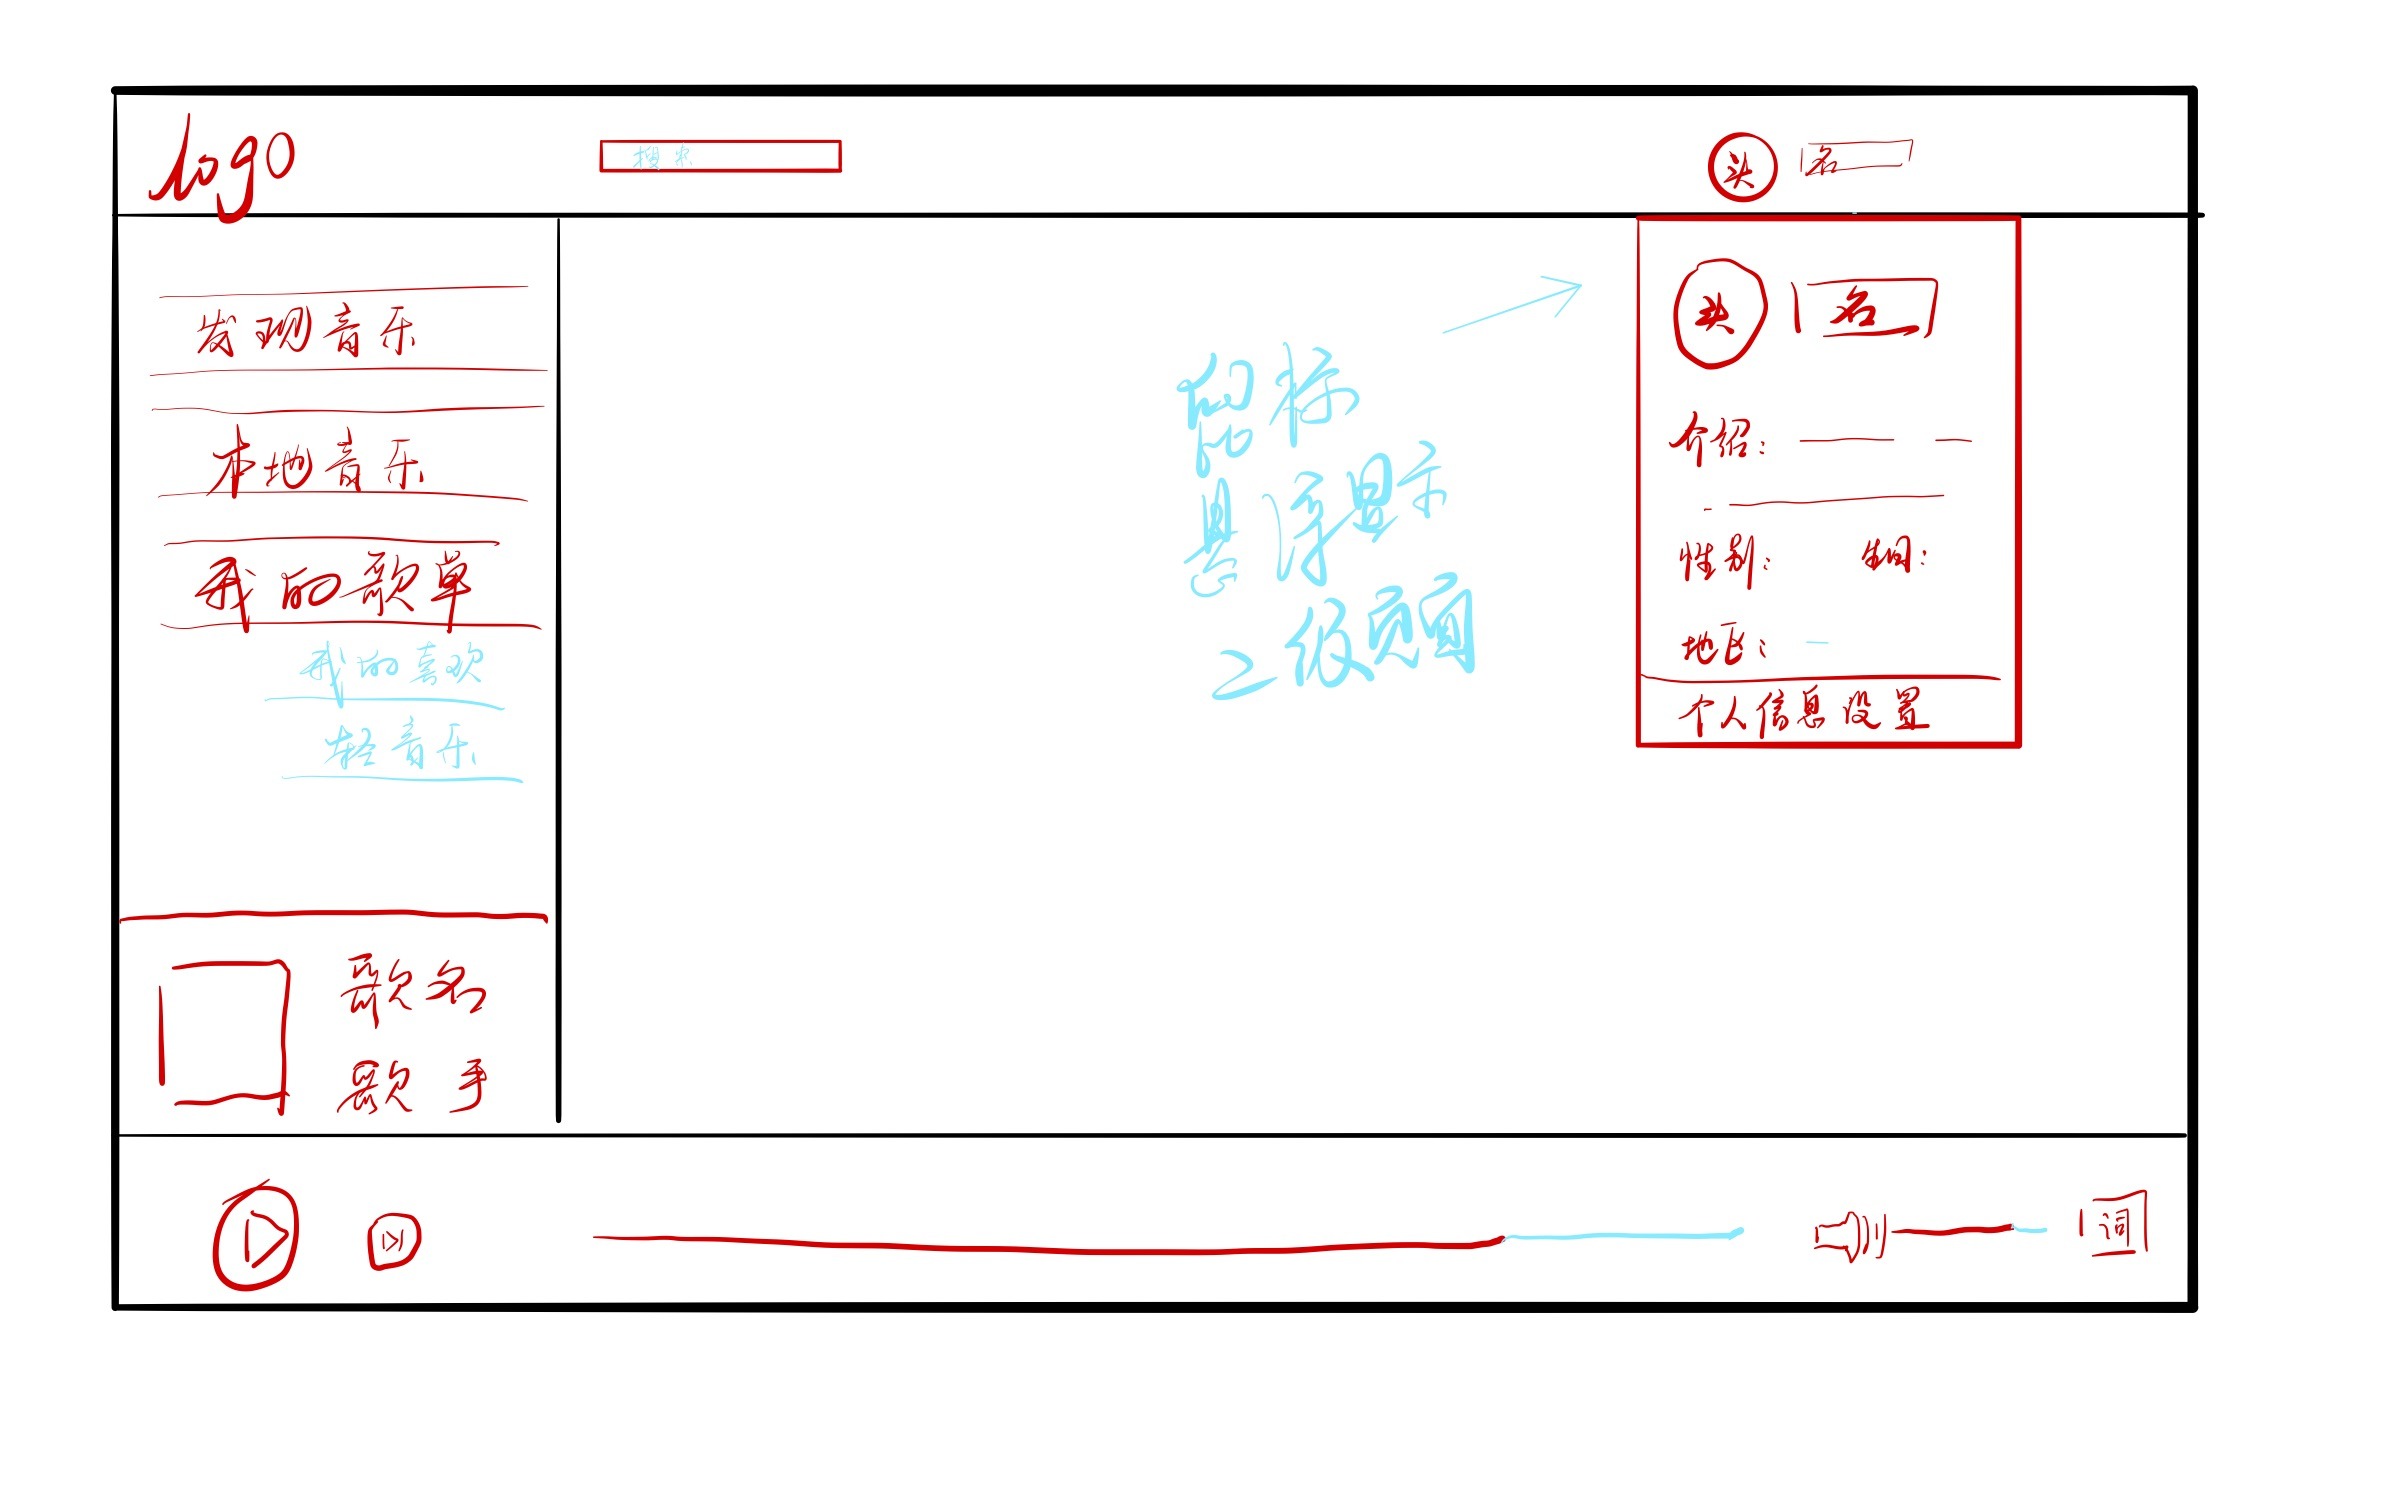 logo
搜索
头 名
发现音乐
本地音乐
我的歌单
我的喜欢
轻音乐
歌名
歌手
鼠标
悬浮显示
二级页面
头 名
介绍：
性别：
地区：
个人信息设置
词